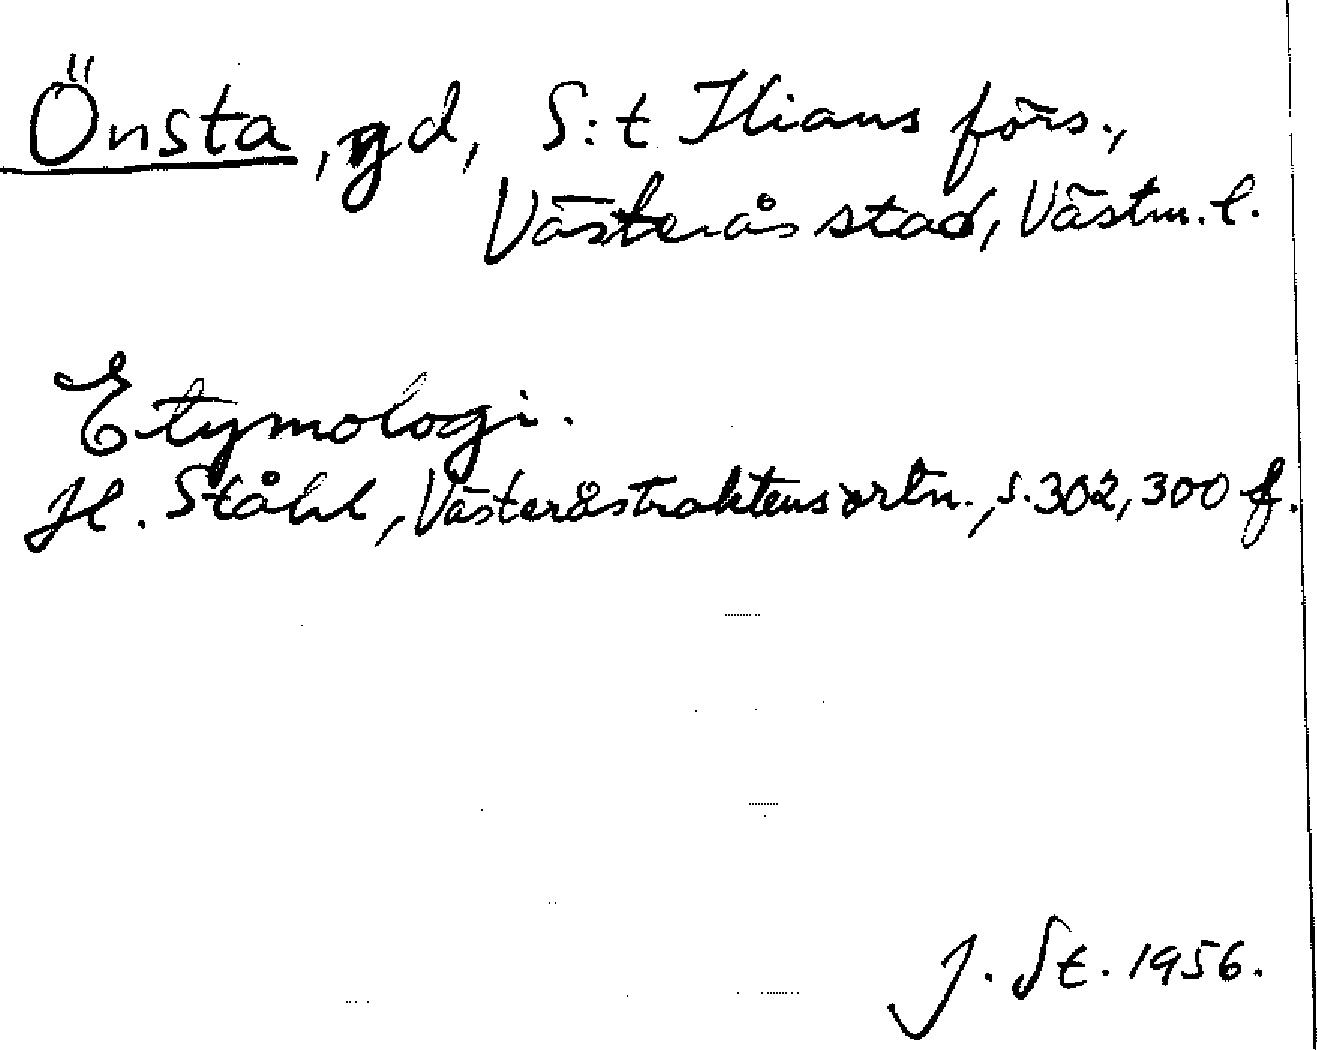 Önsta, gd, S:t Ilians förs.,
Västerås stad, Västm. l.
Etymologi.
H. Ståhl, Västeråstraktens ortn., s. 302, 300 f.
J. St. 1956.